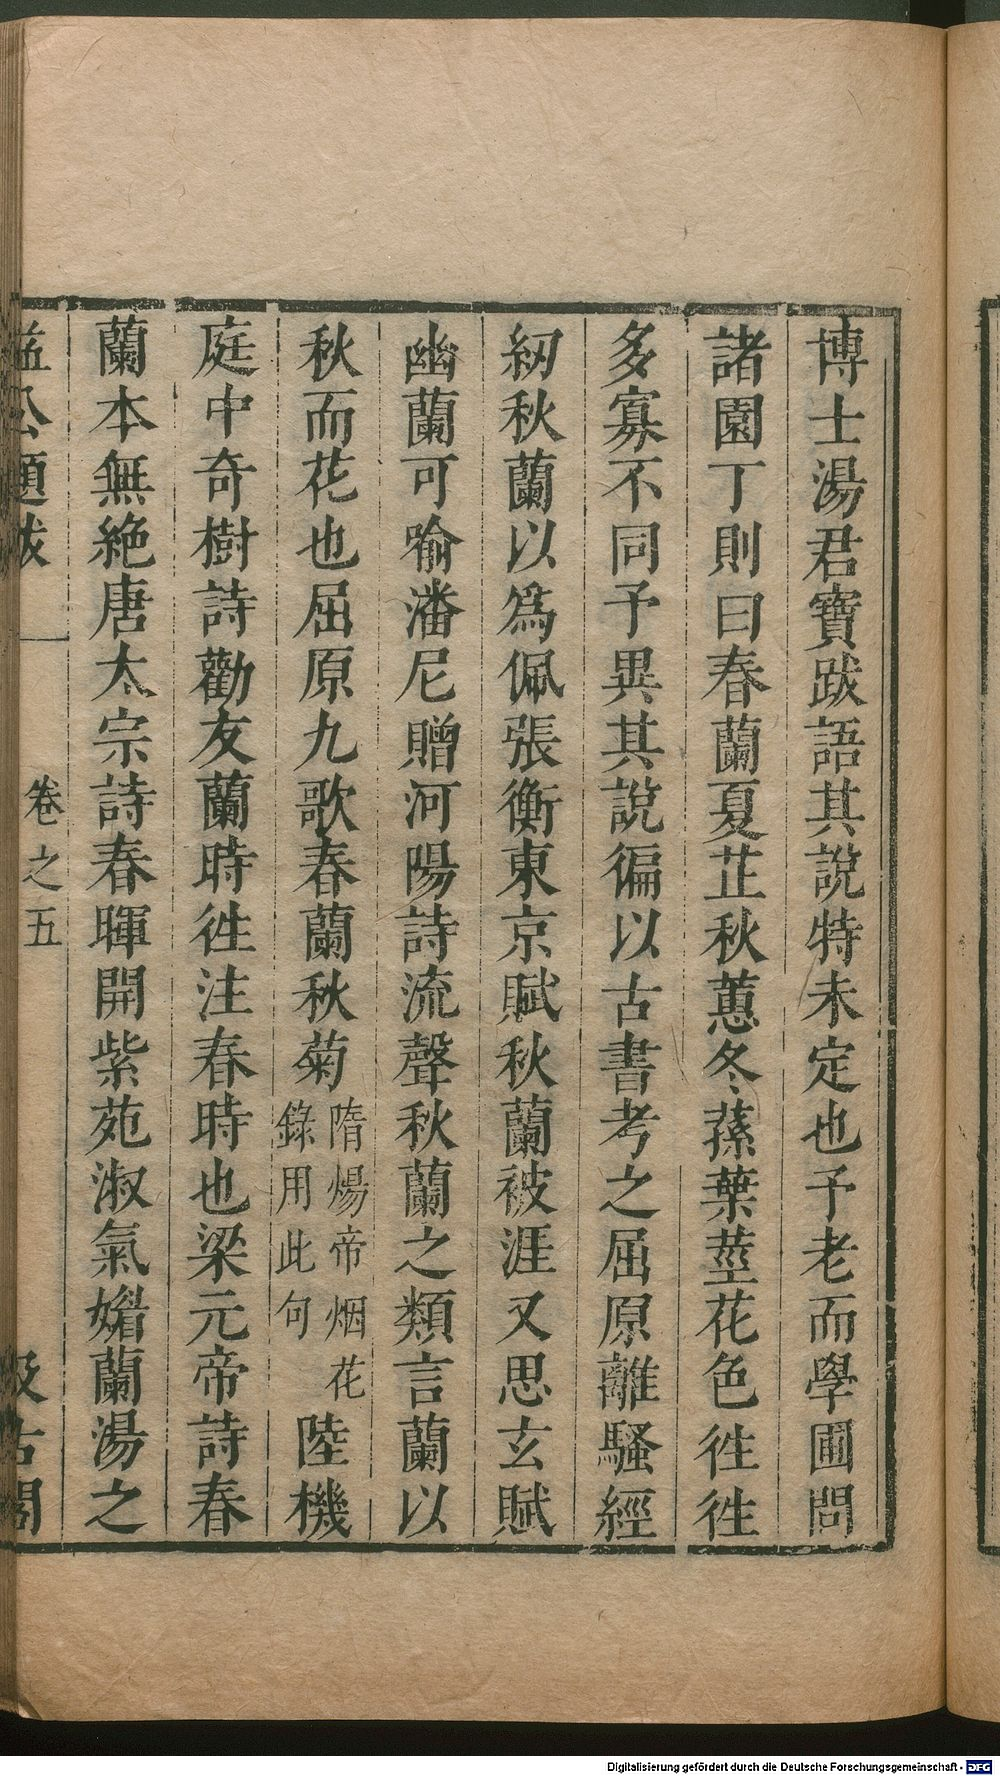 博士湯君寶跋語其說特未定也予老而學圃問
諸園丁則曰春蘭夏芷秋蕙冬蓀葉莖花色徃徃
多寡不同予異其說徧以古書考之屈原離騷經
紉秋蘭以爲佩張衡東京賦秋蘭被涯又思玄賦
幽蘭可喻潘尼贈河陽詩流聲秋蘭之類言蘭以
秋而花也屈原九歌春蘭秋菊
隋煬帝烟花
錄用此句
陸機
庭中奇樹詩勸友蘭時徃注春時也梁元帝詩春
蘭本無絶唐太宗詩春暉開紫苑淑氣媚蘭湯之
益公題跋 卷之五 汲古閣
Digitalisierung gefördert durch die Deutsche Forschungsgemeinschaft - DFG